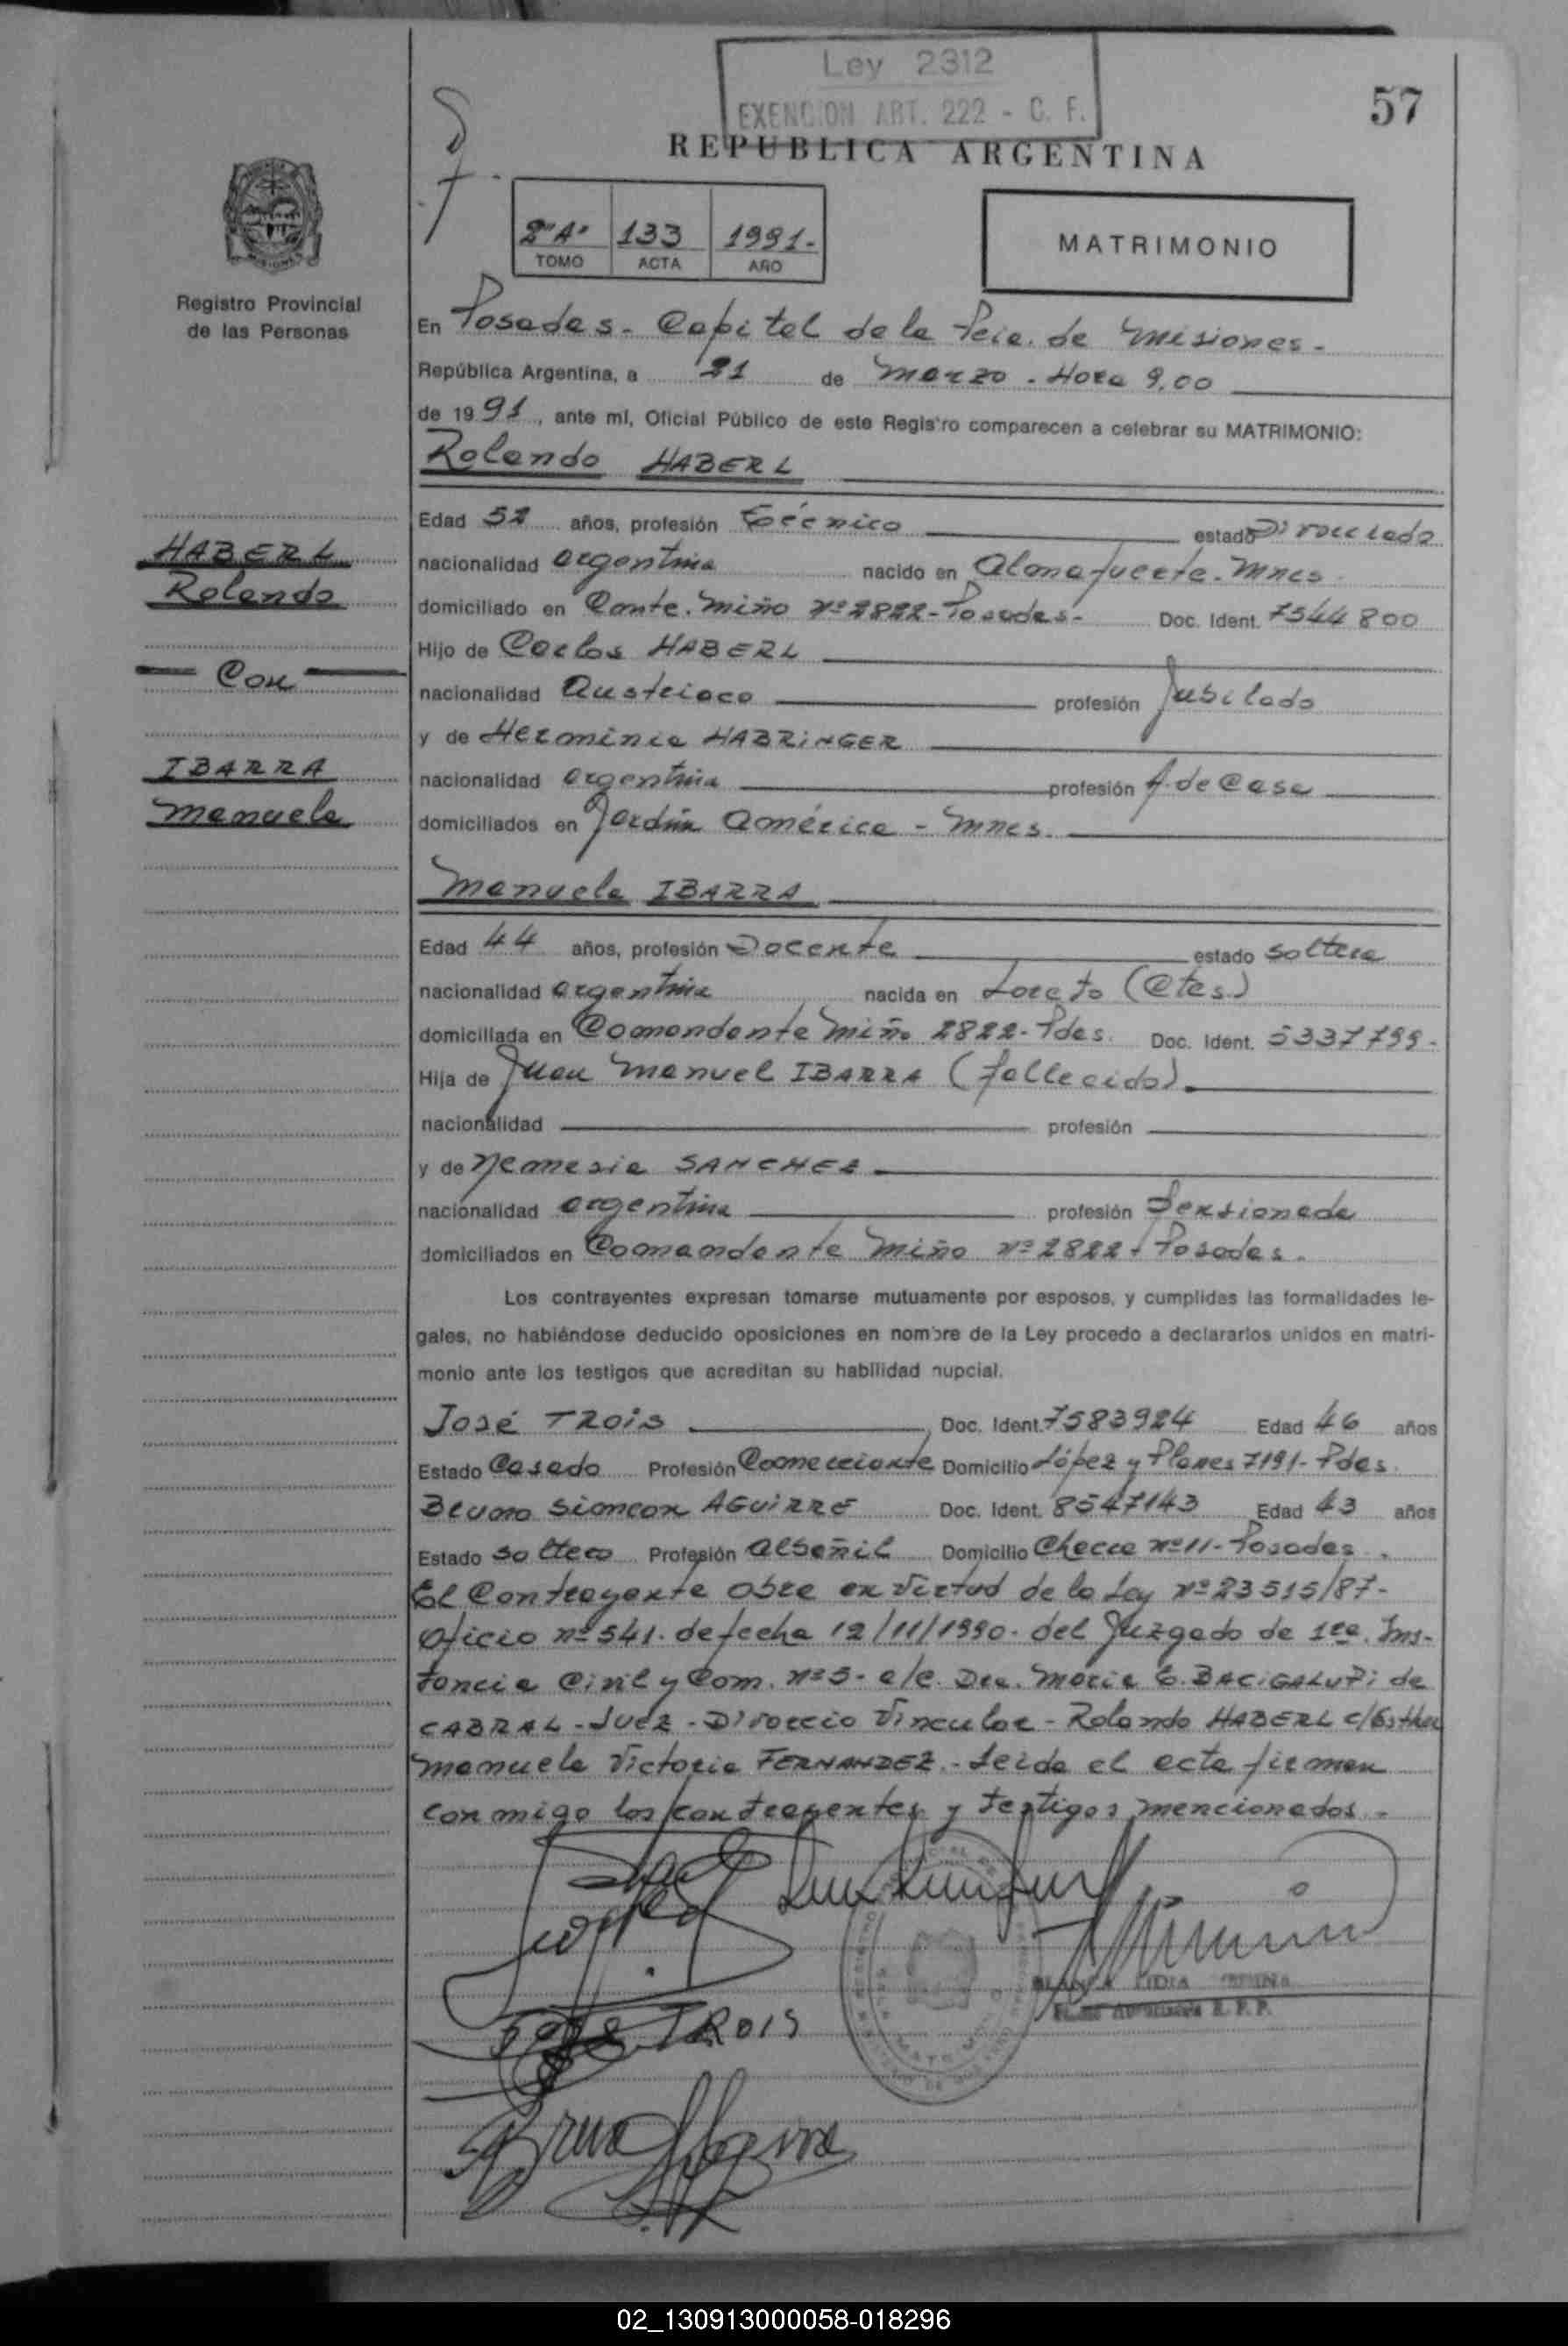 Ley 2312
EXENCION ART. 222 - C. F.
57
REPUBLICA ARGENTINA
2"A" 133 1991.-
TOMO ACTA AÑO
MATRIMONIO
Registro Provincial
de las Personas
En Posadas - Capital de la Pcia. de Misiones -
República Argentina, a 21 de Marzo - Hora 9,00
de 1991, ante mí, Oficial Público de este Registro comparecen a celebrar su MATRIMONIO:
Rolando HABERL
Edad 52 años, profesión técnico estado Divorciado
HABERL
nacionalidad argentina nacido en Alonafuerte - Mnes.
Rolando
domiciliado en Comte. Miño nº 2822 - Posadas - Doc. Ident. 7544800
Hijo de Carlos HABERL
Con
nacionalidad Austriaco profesión Jubilado
y de Herminia HABRINGER
IBARRA
nacionalidad argentina profesión A. de Casa
Manuela
domiciliados en Jardín América - Mnes.
Manuela IBARRA
Edad 44 años, profesión Docente estado soltera
nacionalidad argentina nacida en Loreto (Ctes.)
domiciliada en Comandante Miño 2822 - Pdas. Doc. Ident. 5337799 -
Hija de Juan Manuel IBARRA (fallecido)
nacionalidad profesión
y de Nemesia SANCHEZ
nacionalidad argentina profesión Pensionada
domiciliados en Comandante Miño nº 2822 - Posadas.
Los contrayentes expresan tomarse mutuamente por esposos, y cumplidas las formalidades le-
gales, no habiéndose deducido oposiciones en nombre de la Ley procedo a declararlos unidos en matri-
monio ante los testigos que acreditan su habilidad nupcial.
José TROIS, Doc. Ident. 7583924 Edad 46 años
Estado Casado Profesión Comerciante Domicilio López y Planes 7191 - Pdas.
Bruno Simeon AGUIRRE Doc. Ident. 8547143 Edad 43 años
Estado soltero Profesión albañil Domicilio Chacra nº 11 - Posadas.
El Contrayente obra en virtud de la Ley nº 23515/87 -
Oficio nº 541. de fecha 12/11/1990. del Juzgado de 1ra. Ins-
tancia Civil y Com. nº 5 - a/c. Dra. Maria E. BACIGALUPI de
CABRAL - Juez - Divorcio Vincular - Rolando HABERL c/Esther
Manuela Victoria FERNANDEZ. - Leida el acta firman
conmigo los contrayentes y testigos mencionados. -
José TROIS
BLANCA LIDIA
Bruno Aguirre
02_130913000058-018296